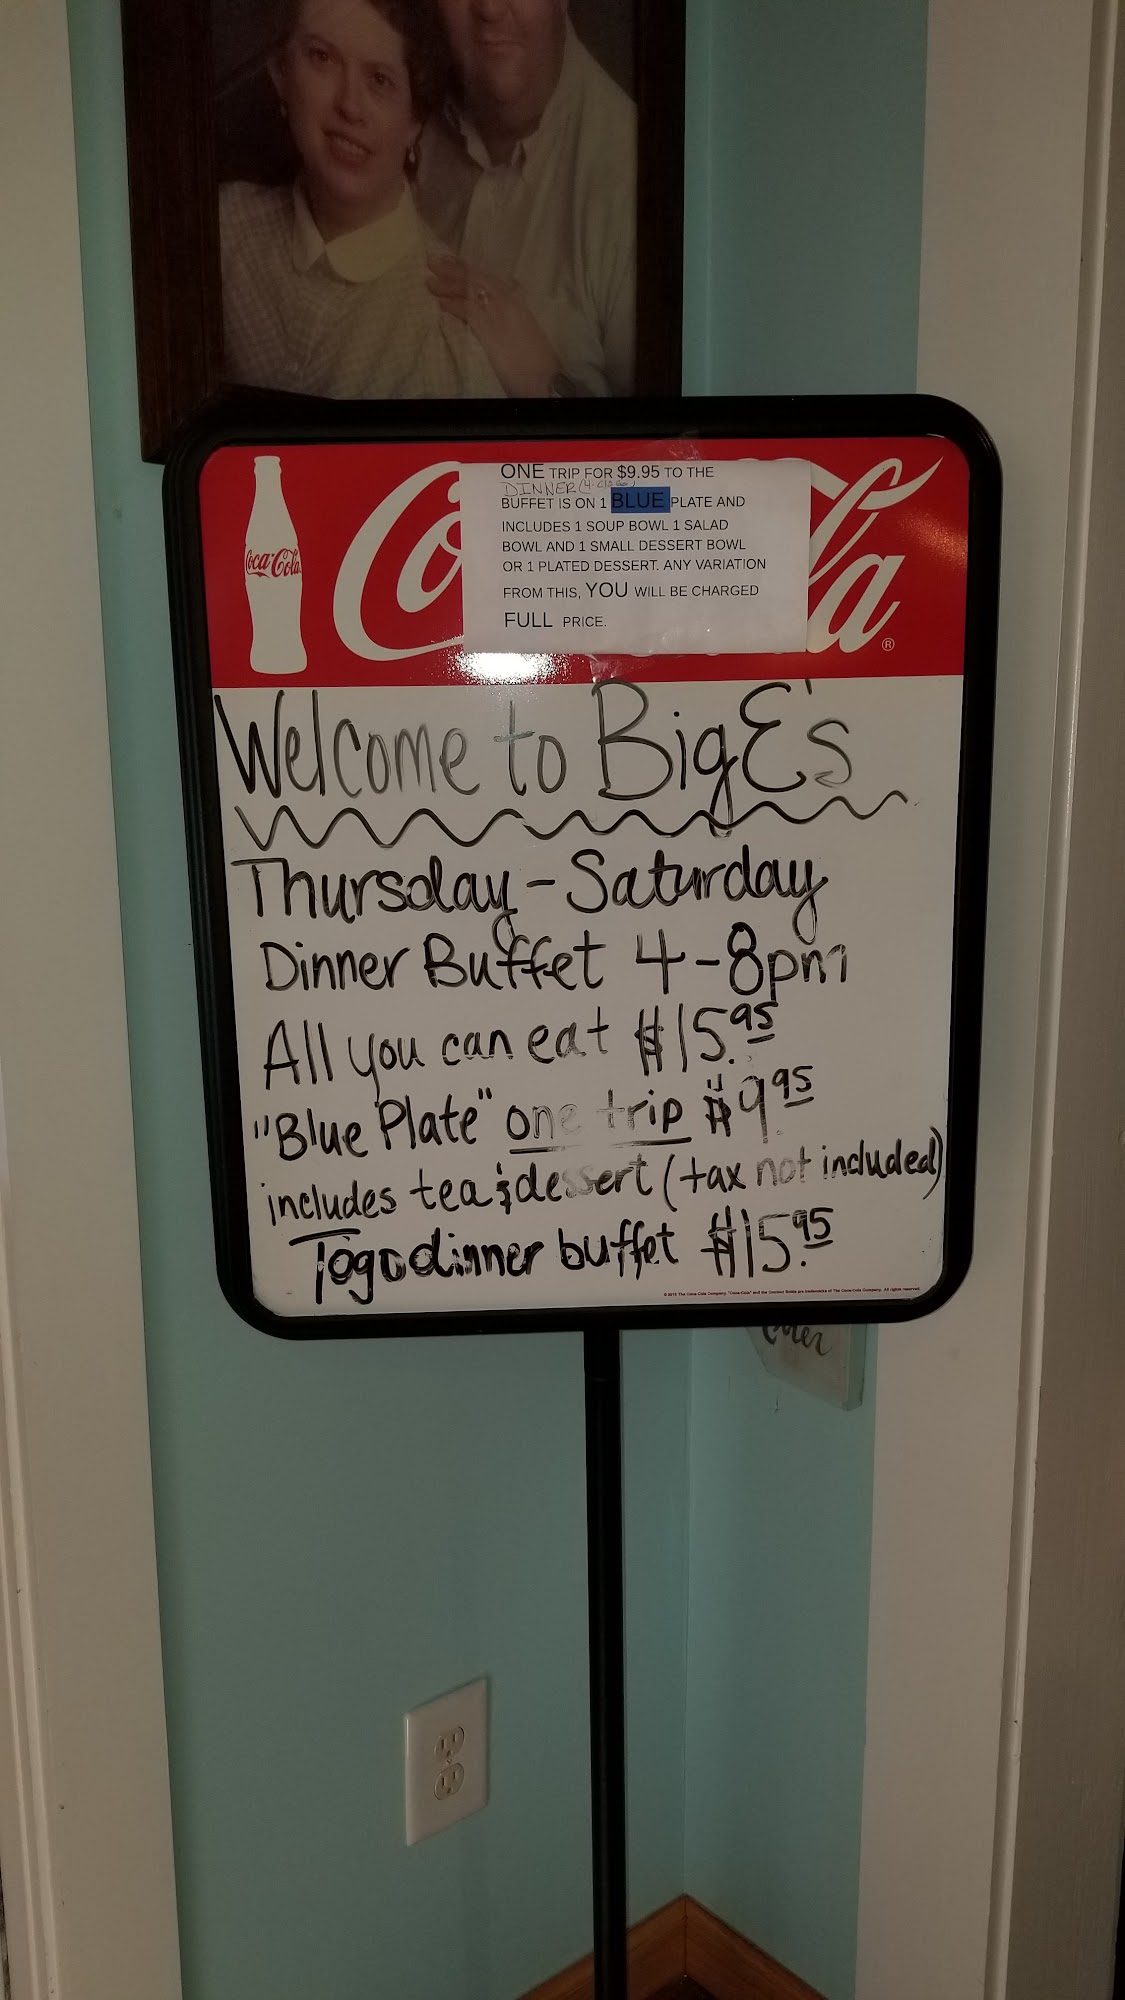 ONE TRIP FOR $9.95 TO THE
DINNER
BUFFET IS ON 1 BLUE PLATE AND
INCLUDES 1 SOUP BOWL 1 SALAD
BOWL AND 1 SMALL DESSERT BOWL
OR 1 PLATED DESSERT. ANY VARIATION
FROM THIS, YOU WILL BE CHARGED
FULL PRICE.
Coca-Cola
Co la ®
Welcome to BigE's
Thursday - Saturday
Dinner Buffet 4-8pm
All you can eat $15.95
"Blue Plate" one trip $9.95
includes tea & dessert (tax not included)
Togo dinner buffet $15.95